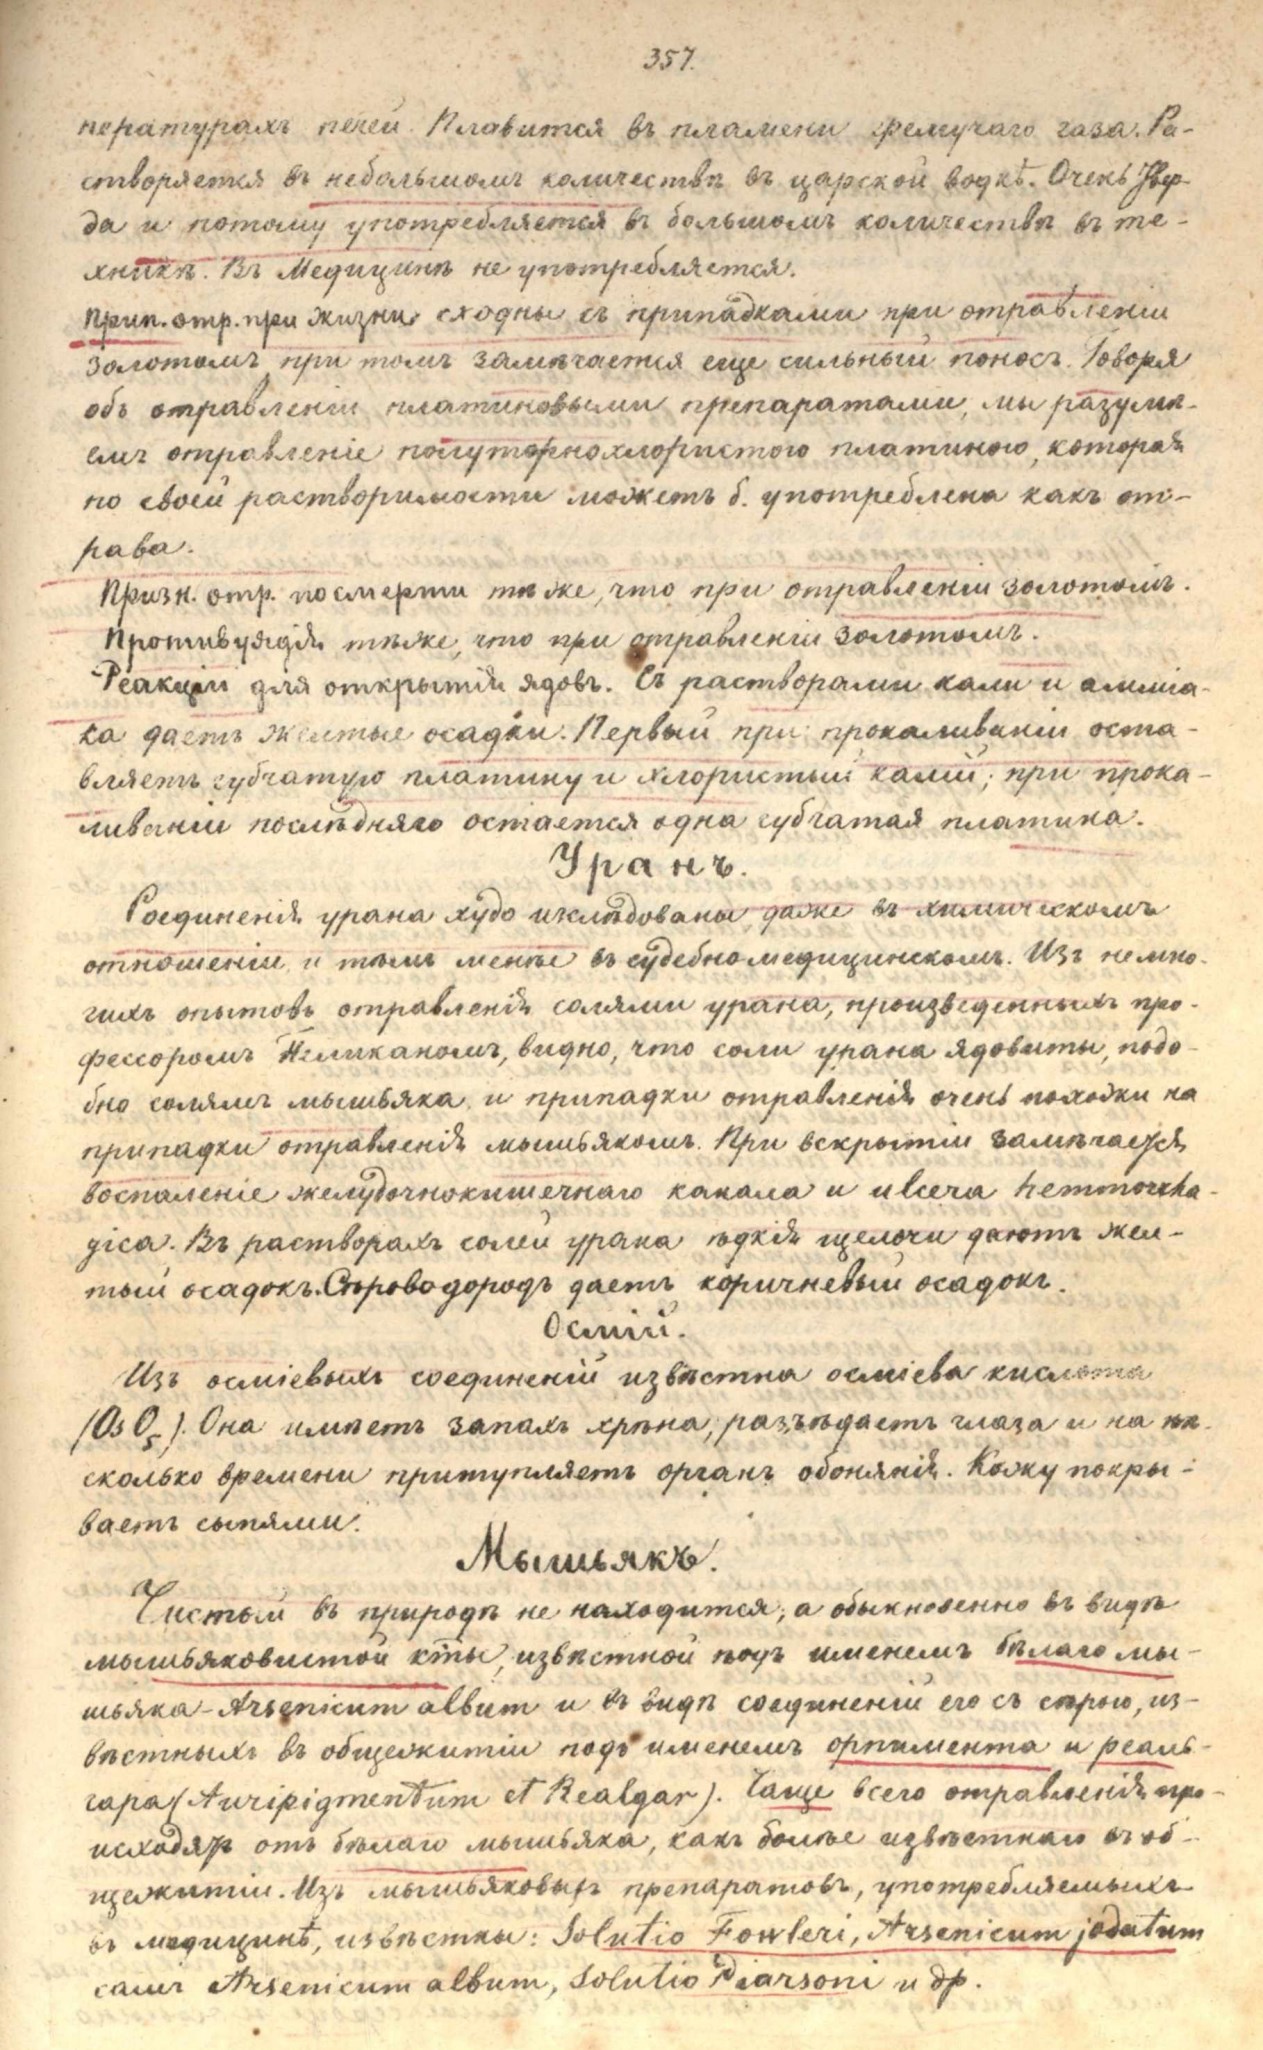 357.
пературахъ печей. Плавится въ пламени гремучаго газа. Ра-
створяется въ небольшомъ количествѣ въ царской водкѣ. Очень твер-
да и потому употребляется въ большомъ количествѣ въ те-
хникѣ. Въ Медицинѣ не употребляется.
Прип. отр. при жизни сходны съ припадками при отравленіи
золотомъ при томъ замѣчается еще сильный поносъ. Говоря
объ отравленіи платиновыми препаратами, мы разумѣ-
емъ отравленіе полуторнохлористою платиною, которая
по своей растворимости можетъ б. употреблена какъ от-
рава.
Призн. отр. посмерти тѣже, что при отравленіи золотомъ.
Противуядія тѣже, что при отравленіи золотомъ.
Реакціи для открытія ядовъ. Съ растворами кали и амміа-
ка даетъ желтые осадки. Первый при прокаливаніи оста-
вляетъ губчатую платину и хлористый калій; при прока-
ливаніи послѣдняго остается одна губчатая платина.
Уранъ.
Соединенія урана худо изслѣдованы даже въ химическомъ
отношеніи и тѣмъ менѣе въ судебномедицинскомъ. Изъ немно-
гихъ опытовъ отравленія солями урана, произведенныхъ про-
фессоромъ Пеликаномъ, видно, что соли урана ядовиты, подо-
бно солямъ мышьяка и припадки отравленія очень похожи на
припадки отравленія мышьякомъ. При вскрытіи замѣчается
воспаленіе желудочнокишечнаго канала и ulcera hemmorrha-
gica. Въ растворахъ солей урана ѣдкія щелочи даютъ жел-
тый осадокъ. Сѣроводородъ даетъ коричневый осадокъ.
Осмій.
Изъ осміевыхъ соединеній извѣстна осміева кислота
(Os O5). Она имѣетъ запахъ хрѣна, разъѣдаетъ глаза и на нѣ-
сколько времени притупляетъ органъ обонянія. Кожу покры-
ваетъ сыпями.
Мышьякъ.
Чистый въ природѣ не находится, а обыкновенно въ видѣ
мышьяковистой к͞ты, извѣстной подъ именемъ бѣлаго мы-
шьяка - Arsenicum album и въ видѣ соединеній его съ сѣрою, из-
вѣстныхъ въ общежитіи подъ именемъ орпимента и реаль-
гара (Auripigmentum et Realgar). Чаще всего отравленія про-
исходятъ отъ бѣлаго мышьяка, какъ болѣе извѣстнаго въ об-
щежитіи. Изъ мышьяковыхъ препаратовъ, употребляемыхъ
въ медицинѣ, извѣстны: Solutio Fowleri, Arsenicum jodatum
самъ Arsenicum album, Solutio Piarsoni и др.